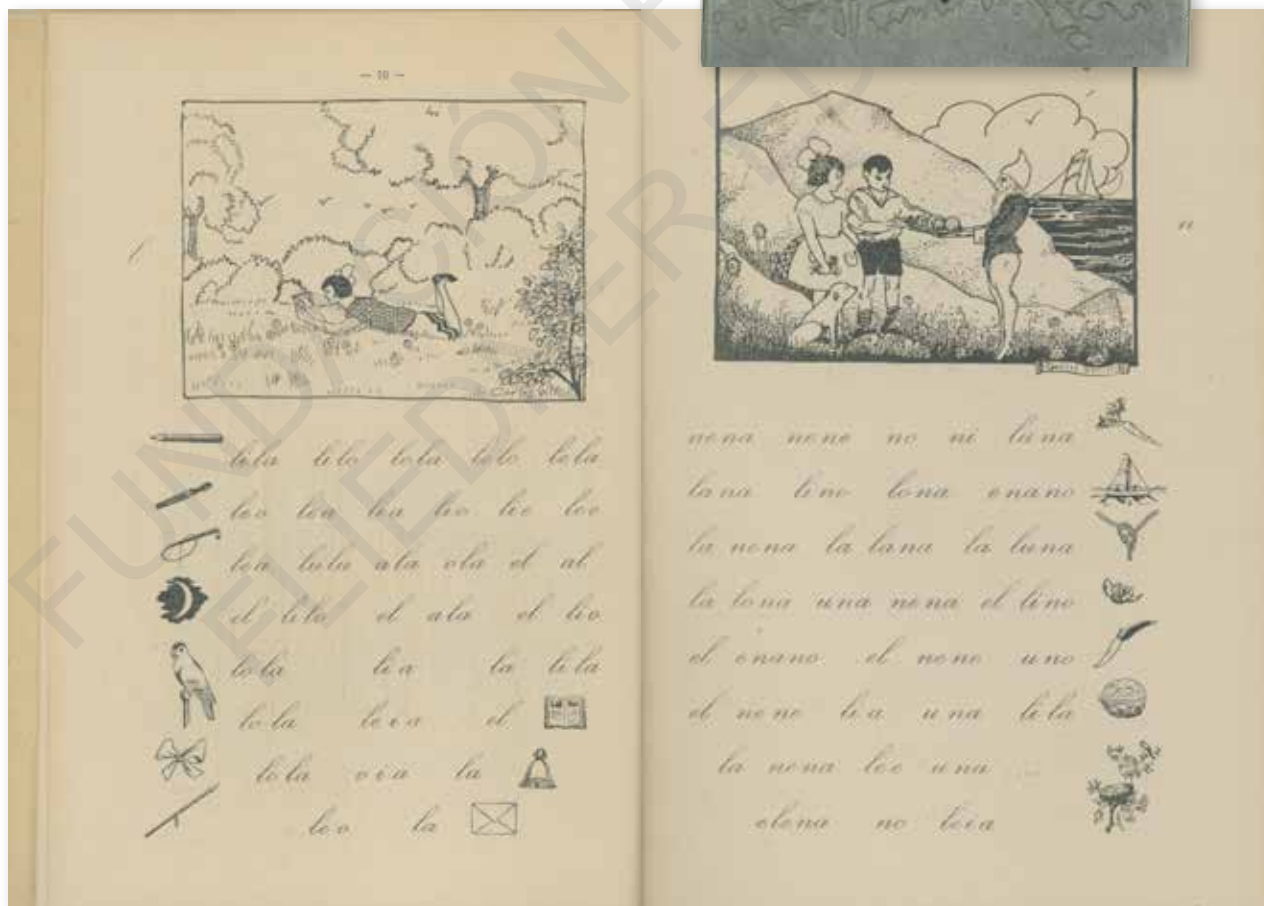 — 10 —
lila lilo lola lolo lela
leo lea lía lío lie lee
loa lulu ala ola el al
el lilo el ala el lio
lola lia la lila
lola leia el
lola oia la
leo la
nena nene no ni luna
lana lino lona enano
la nena la lana la luna
la lona una nena el lino
el enano el nene uno
el nene lia una lila
la nena lee una
elena no leia
FUNDACIÓN